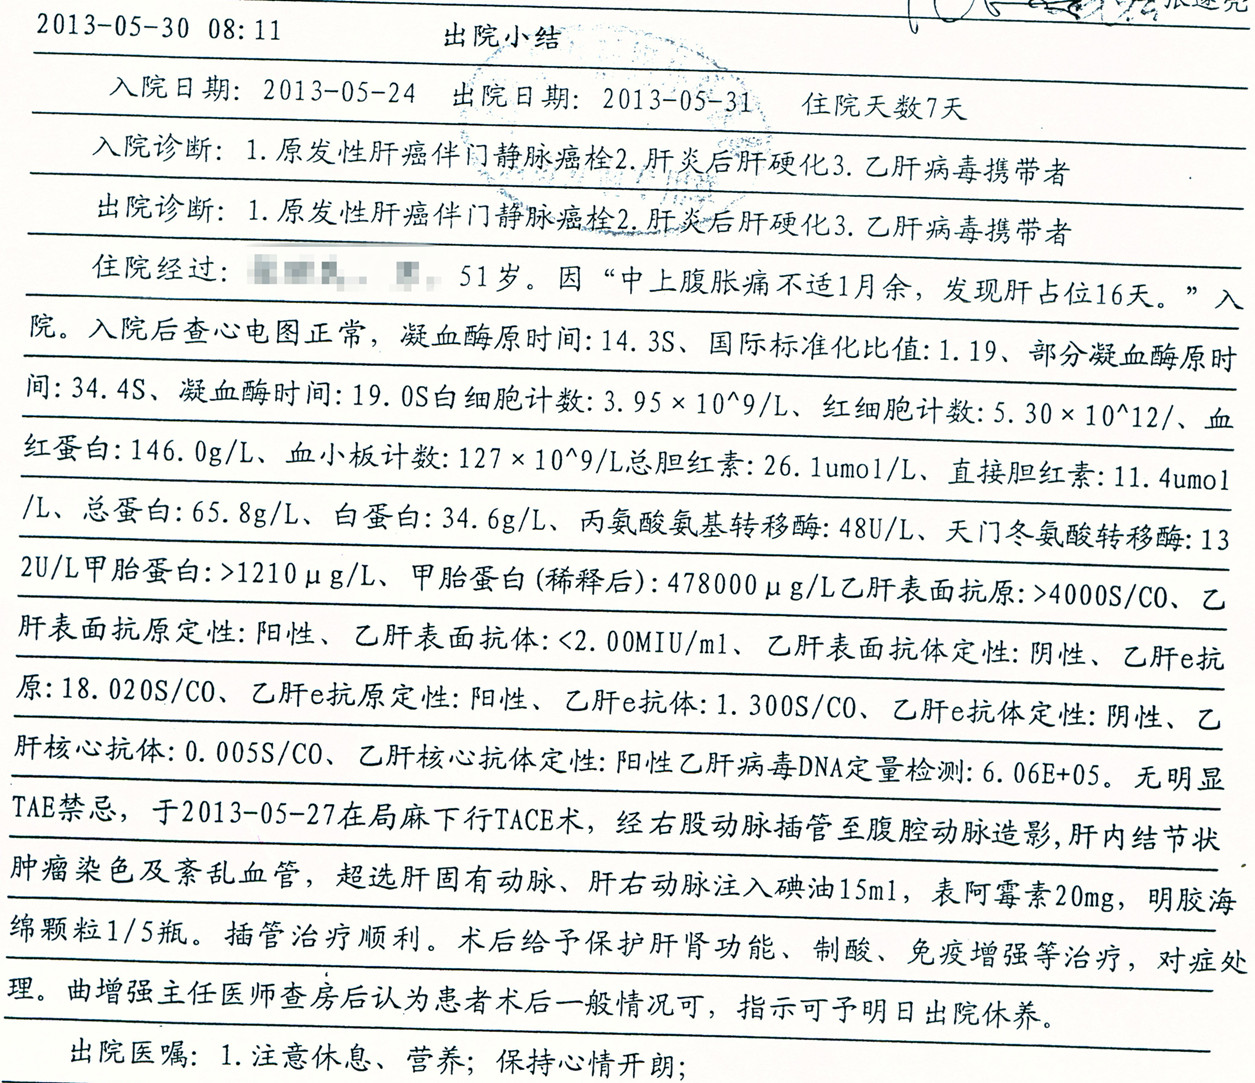 2013-05-30 08:11 出院小结
入院日期: 2013-05-24 出院日期: 2013-05-31 住院天数7天
入院诊断: 1.原发性肝癌伴门静脉癌栓2.肝炎后肝硬化3.乙肝病毒携带者
出院诊断: 1.原发性肝癌伴门静脉癌栓2.肝炎后肝硬化3.乙肝病毒携带者
住院经过: 51岁。因“中上腹胀痛不适1月余，发现肝占位16天。”入
院。入院后查心电图正常，凝血酶原时间:14.3S、国际标准化比值:1.19、部分凝血酶原时
间:34.4S、凝血酶时间:19.0S白细胞计数:3.95×10^9/L、红细胞计数:5.30×10^12/、血
红蛋白:146.0g/L、血小板计数:127×10^9/L总胆红素:26.1umol/L、直接胆红素:11.4umol
/L、总蛋白:65.8g/L、白蛋白:34.6g/L、丙氨酸氨基转移酶:48U/L、天门冬氨酸转移酶:13
2U/L甲胎蛋白:>1210μg/L、甲胎蛋白(稀释后):478000μg/L乙肝表面抗原:>4000S/CO、乙
肝表面抗原定性:阳性、乙肝表面抗体:<2.00MIU/ml、乙肝表面抗体定性:阴性、乙肝e抗
原:18.020S/CO、乙肝e抗原定性:阳性、乙肝e抗体:1.300S/CO、乙肝e抗体定性:阴性、乙
肝核心抗体:0.005S/CO、乙肝核心抗体定性:阳性乙肝病毒DNA定量检测:6.06E+05。无明显
TAE禁忌，于2013-05-27在局麻下行TACE术，经右股动脉插管至腹腔动脉造影,肝内结节状
肿瘤染色及紊乱血管，超选肝固有动脉、肝右动脉注入碘油15ml，表阿霉素20mg，明胶海
绵颗粒1/5瓶。插管治疗顺利。术后给予保护肝肾功能、制酸、免疫增强等治疗，对症处
理。曲增强主任医师查房后认为患者术后一般情况可，指示可予明日出院休养。
出院医嘱: 1.注意休息、营养；保持心情开朗；